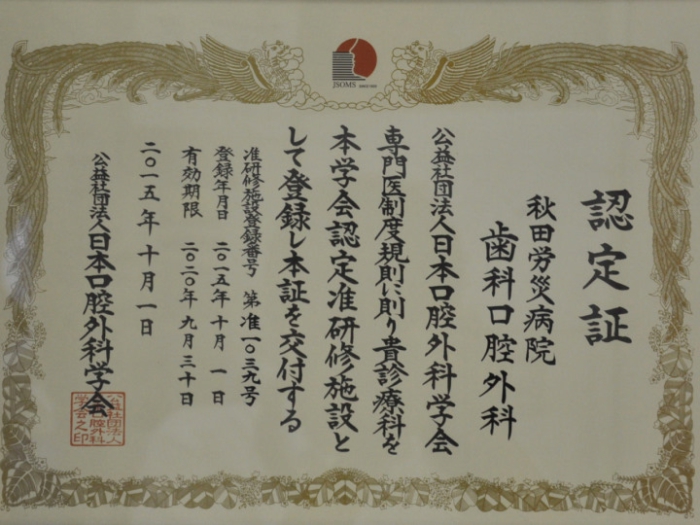 JSOMS
認定証
秋田労災病院
歯科口腔外科
公益社団法人日本口腔外科学会
専門医制度規則に則り貴診療科を
本学会認定准研修施設と
して登録し本証を交付する
准研修施設登録番号 第准一〇三九号
登録年月日 二〇一五年 十月 一日
有効期限 二〇二〇年 九月三十日
二〇一五年 十月一日
公益社団法人日本口腔外科学会